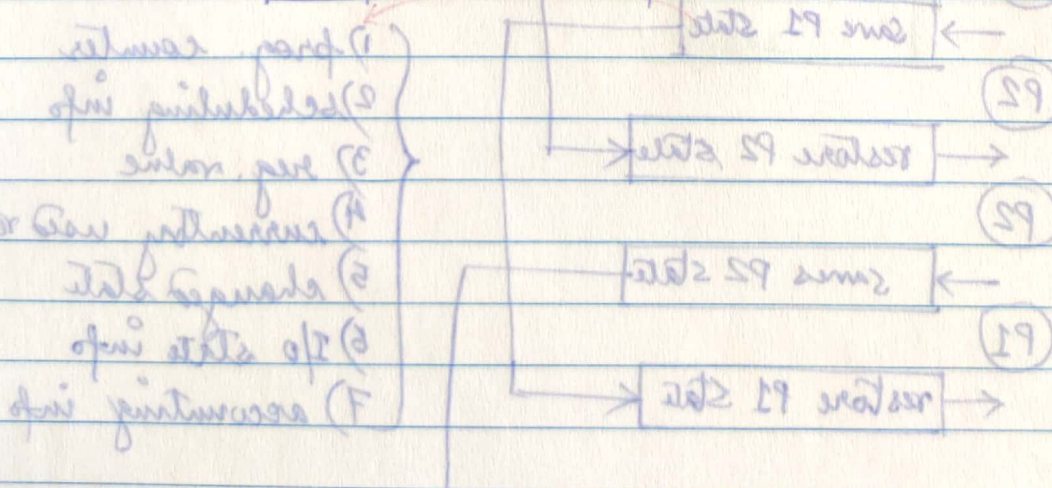 save P1 state
P2
restore P2 state
P2
saves P2 state
P1
restore P1 state
1) prog. counter
2) scheduling info
3) reg. value
4) currently used
5) changed state
6) I/o state info
7) accounting info